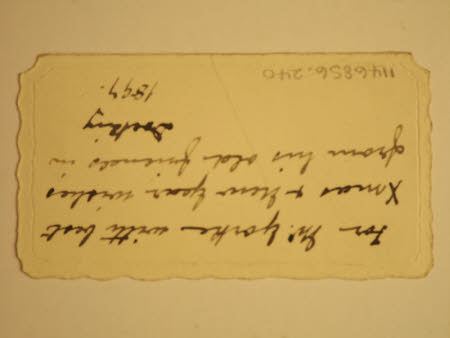 For Mr. Yorke with best
Xmas & New Year wishes
from his old friends in
1897.
1146856.240